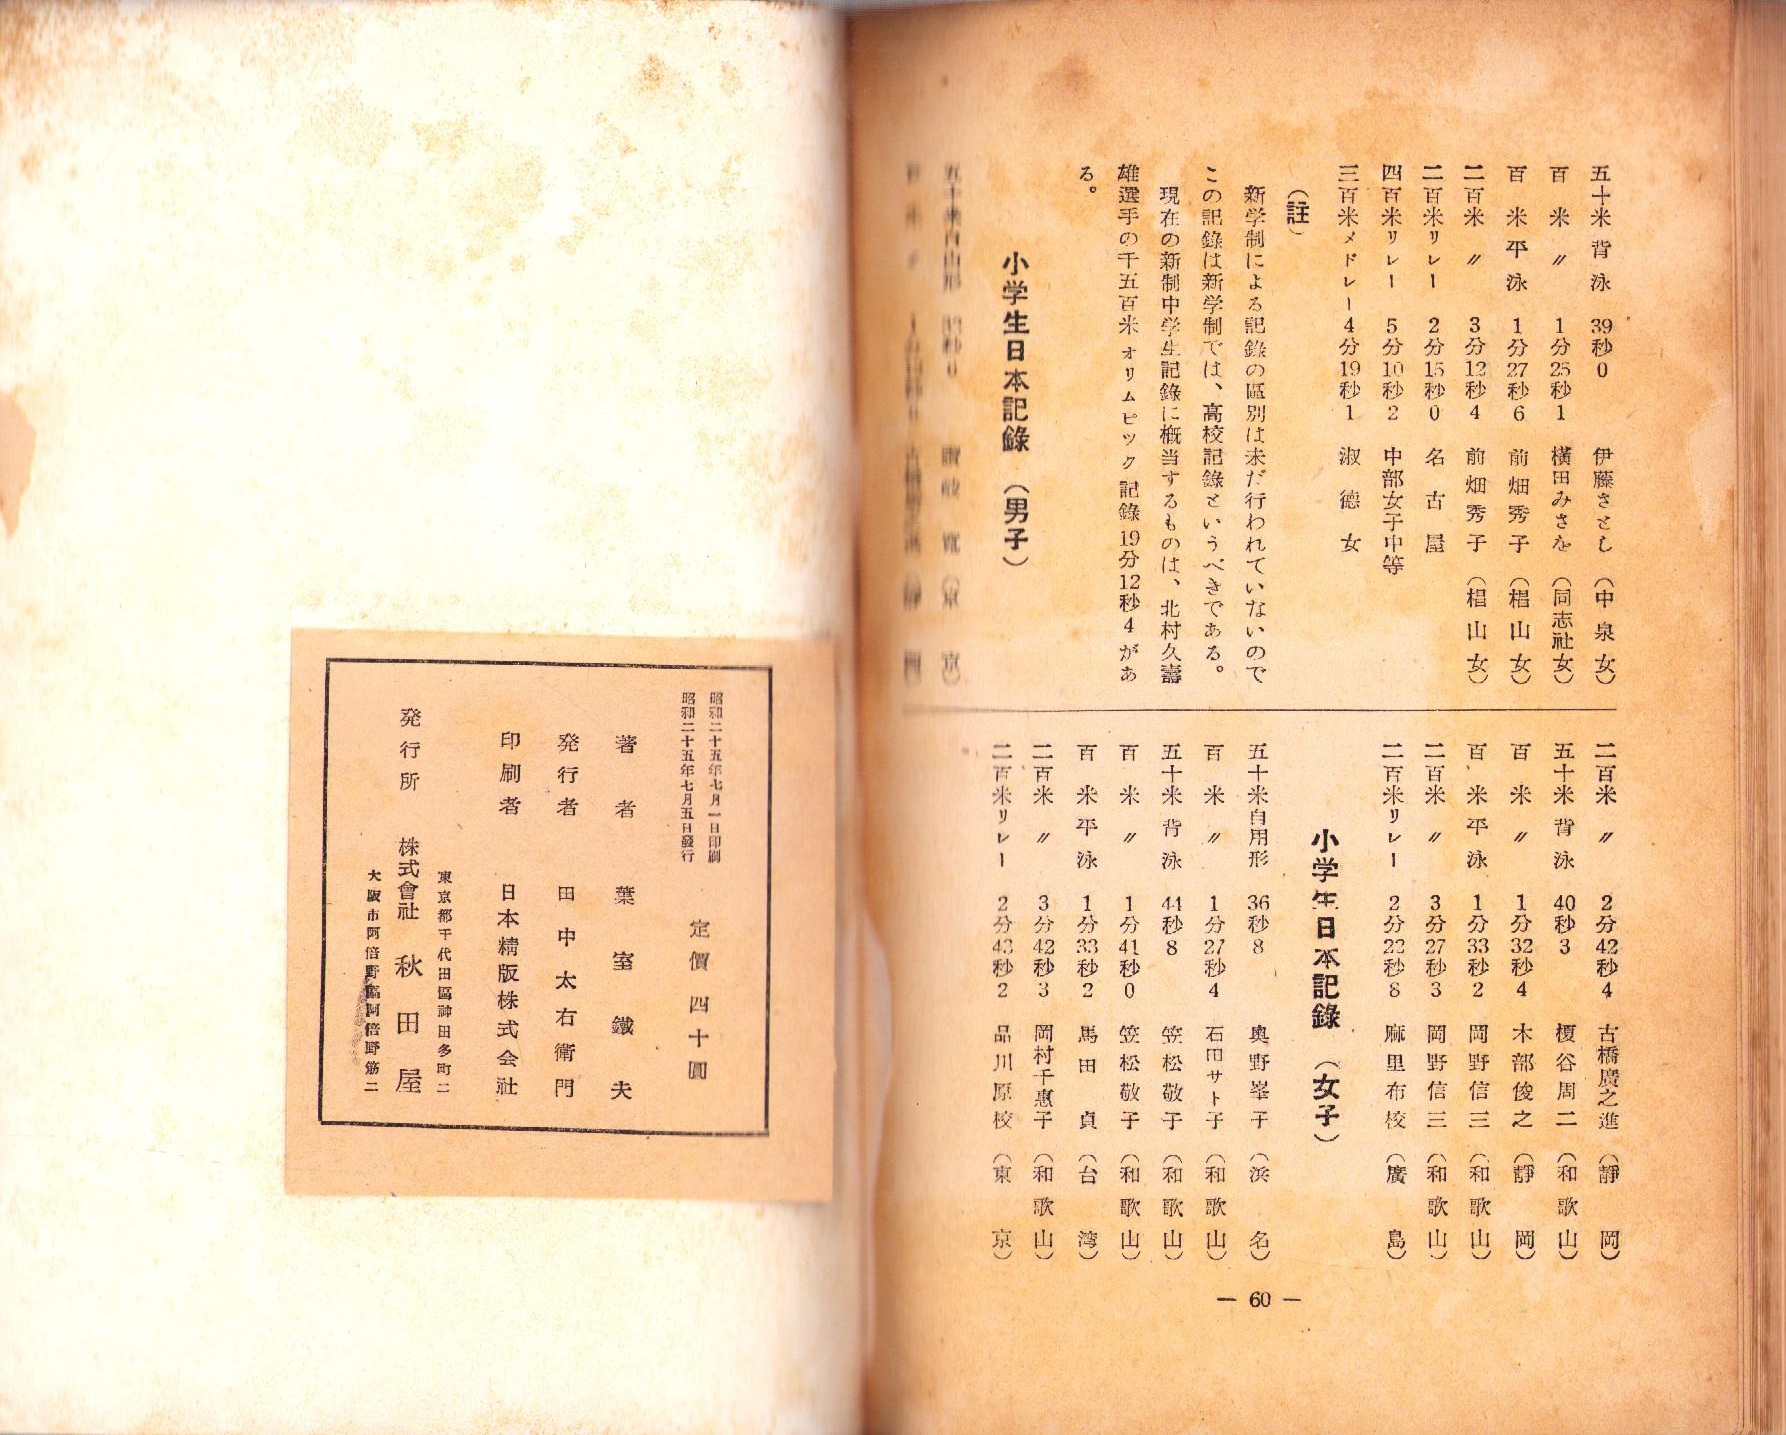 五十米背泳 39秒0 伊藤さとし（中泉女）
百米〃 1分25秒1 横田みさを（同志社女）
百米平泳 1分27秒6 前畑秀子（椙山女）
二百米〃 3分12秒4 前畑秀子（椙山女）
二百米リレー 2分15秒0 名古屋
四百米リレー 5分10秒2 中部女子中等
三百米メドレー 4分19秒1 淑徳女
（註）
新学制による記錄の區別は未だ行われていないので
この記錄は新学制では、高校記錄というべきである。
現在の新制中学生記錄に概当するものは、北村久壽
雄選手の千五百米オリムピック記錄19分12秒4があ
る。
小学生日本記錄（男子）
五十米自由形 秒0（東京）
二百米〃 2分42秒4 古橋廣之進（靜岡）
五十米背泳 40秒3 榎谷周二（和歌山）
百米〃 1分32秒4 木部俊之（靜岡）
百米平泳 1分33秒2 岡野信三（和歌山）
二百米〃 3分27秒3 岡野信三（和歌山）
二百米リレー 2分22秒8 麻里布校（廣島）
小学生日本記錄（女子）
五十米自用形 36秒8 奥野峯子（浜名）
百米〃 1分27秒4 石田サト子（和歌山）
五十米背泳 44秒8 笠松敬子（和歌山）
百米〃 1分41秒0 笠松敬子（和歌山）
百米平泳 1分33秒2 馬田貞（台湾）
二百米〃 3分42秒3 岡村千惠子（和歌山）
二百米リレー 2分43秒2 品川原校（東京）
— 60 —
昭和二十五年七月一日印刷
昭和二十五年七月五日發行
定價四十圓
著者 葉室鐵夫
発行者 田中太右衛門
印刷者 日本精版株式会社
東京都千代田區神田多町二
発行所 株式會社 秋田屋
大阪市阿倍野區阿倍野筋二